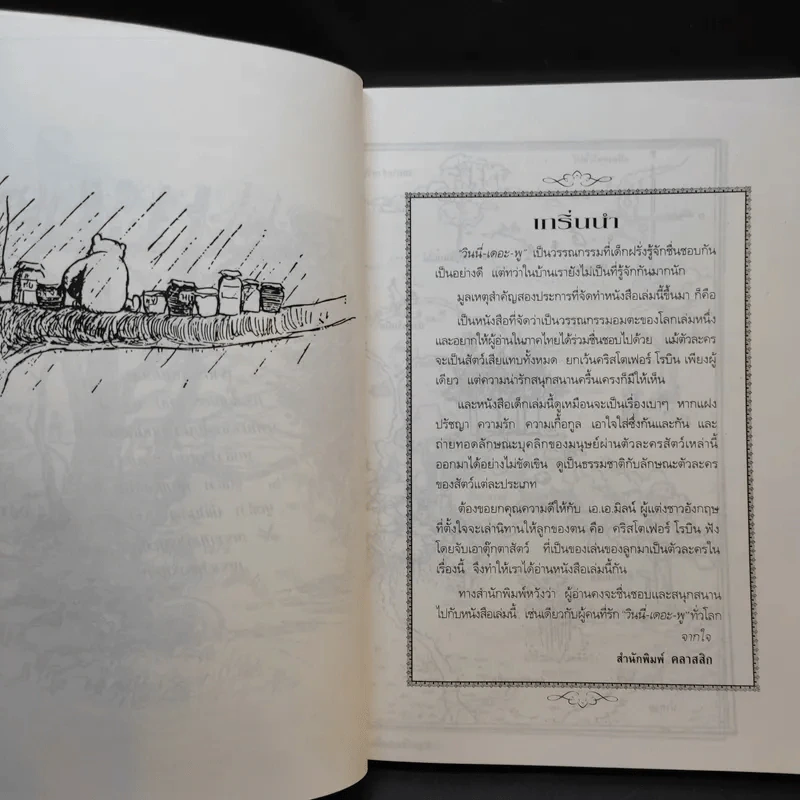 เกริ่นนำ
"วินนี่-เดอะ-พู" เป็นวรรณกรรมที่เด็กฝรั่งรู้จักชื่นชอบกัน
เป็นอย่างดี แต่ทว่าในบ้านเรายังไม่เป็นที่รู้จักกันมากนัก
มูลเหตุสำคัญสองประการที่จัดทำหนังสือเล่มนี้ขึ้นมา ก็คือ
เป็นหนังสือที่จัดว่าเป็นวรรณกรรมอมตะของโลกเล่มหนึ่ง
และอยากให้ผู้อ่านในภาคไทยได้ร่วมชื่นชอบไปด้วย แม้ตัวละคร
จะเป็นสัตว์เสียแทบทั้งหมด ยกเว้นคริสโตเฟอร์ โรบิน เพียงผู้
เดียว แต่ความน่ารักสนุกสนานครื้นเครงก็มีให้เห็น
และหนังสือเด็กเล่มนี้ดูเหมือนจะเป็นเรื่องเบาๆ หากแฝง
ปรัชญา ความรัก ความเกื้อกูล เอาใจใส่ซึ่งกันและกัน และ
ถ่ายทอดลักษณะบุคลิกของมนุษย์ผ่านตัวละครสัตว์เหล่านี้
ออกมาได้อย่างไม่ขัดเขิน ดูเป็นธรรมชาติกับลักษณะตัวละคร
ของสัตว์แต่ละประเภท
ต้องขอยกคุณความดีให้กับ เอ.เอ.มิลน์ ผู้แต่งชาวอังกฤษ
ที่ตั้งใจจะเล่านิทานให้ลูกของตน คือ คริสโตเฟอร์ โรบิน ฟัง
โดยจับเอาตุ๊กตาสัตว์ ที่เป็นของเล่นของลูกมาเป็นตัวละครใน
เรื่องนี้ จึงทำให้เราได้อ่านหนังสือเล่มนี้กัน
ทางสำนักพิมพ์หวังว่า ผู้อ่านคงจะชื่นชอบและสนุกสนาน
ไปกับหนังสือเล่มนี้ เช่นเดียวกับผู้คนที่รัก "วินนี่-เดอะ-พู" ทั่วโลก
จากใจ
สำนักพิมพ์ คลาสสิก